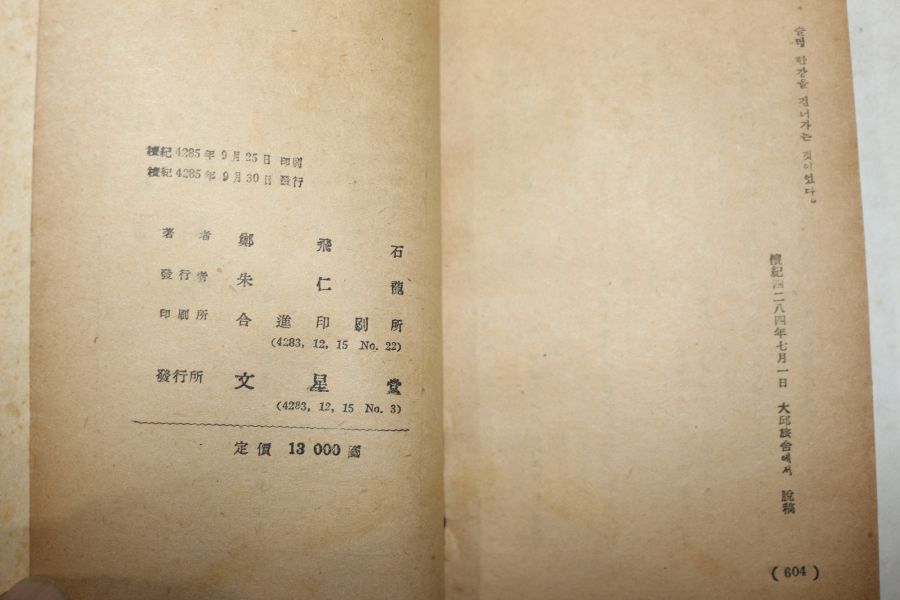 檀紀4285年 9月25日 印刷
檀紀4285年 9月30日 發行
著者 鄭飛石
發行者 朱仁龍
印刷所 合進印刷所
(4283, 12, 15 No. 22)
發行所 文星堂
(4283, 12, 15 No. 3)
定價 13 000圓
한강을 건너가는 것이었다。
檀紀四二八四年七月一日 大邱旅舍에서 脫稿
( 604 )